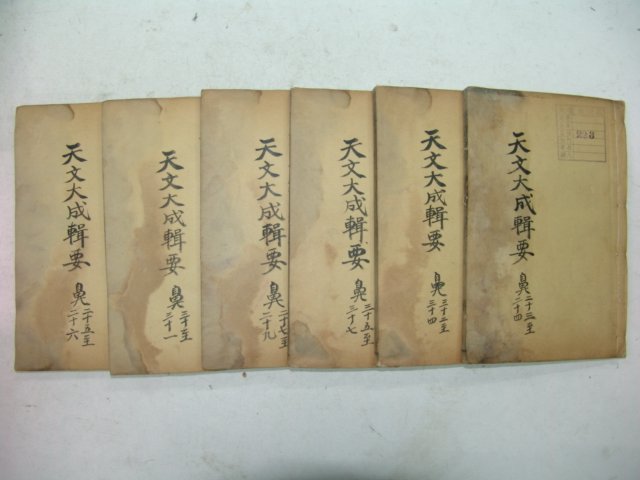 天文大成輯要
二十三至
二十四
天文大成輯要
三十二至
三十四
天文大成輯要
三十五至
三十七
天文大成輯要
二十七至
二十九
天文大成輯要
三十至
三十一
天文大成輯要
二十五至
二十六